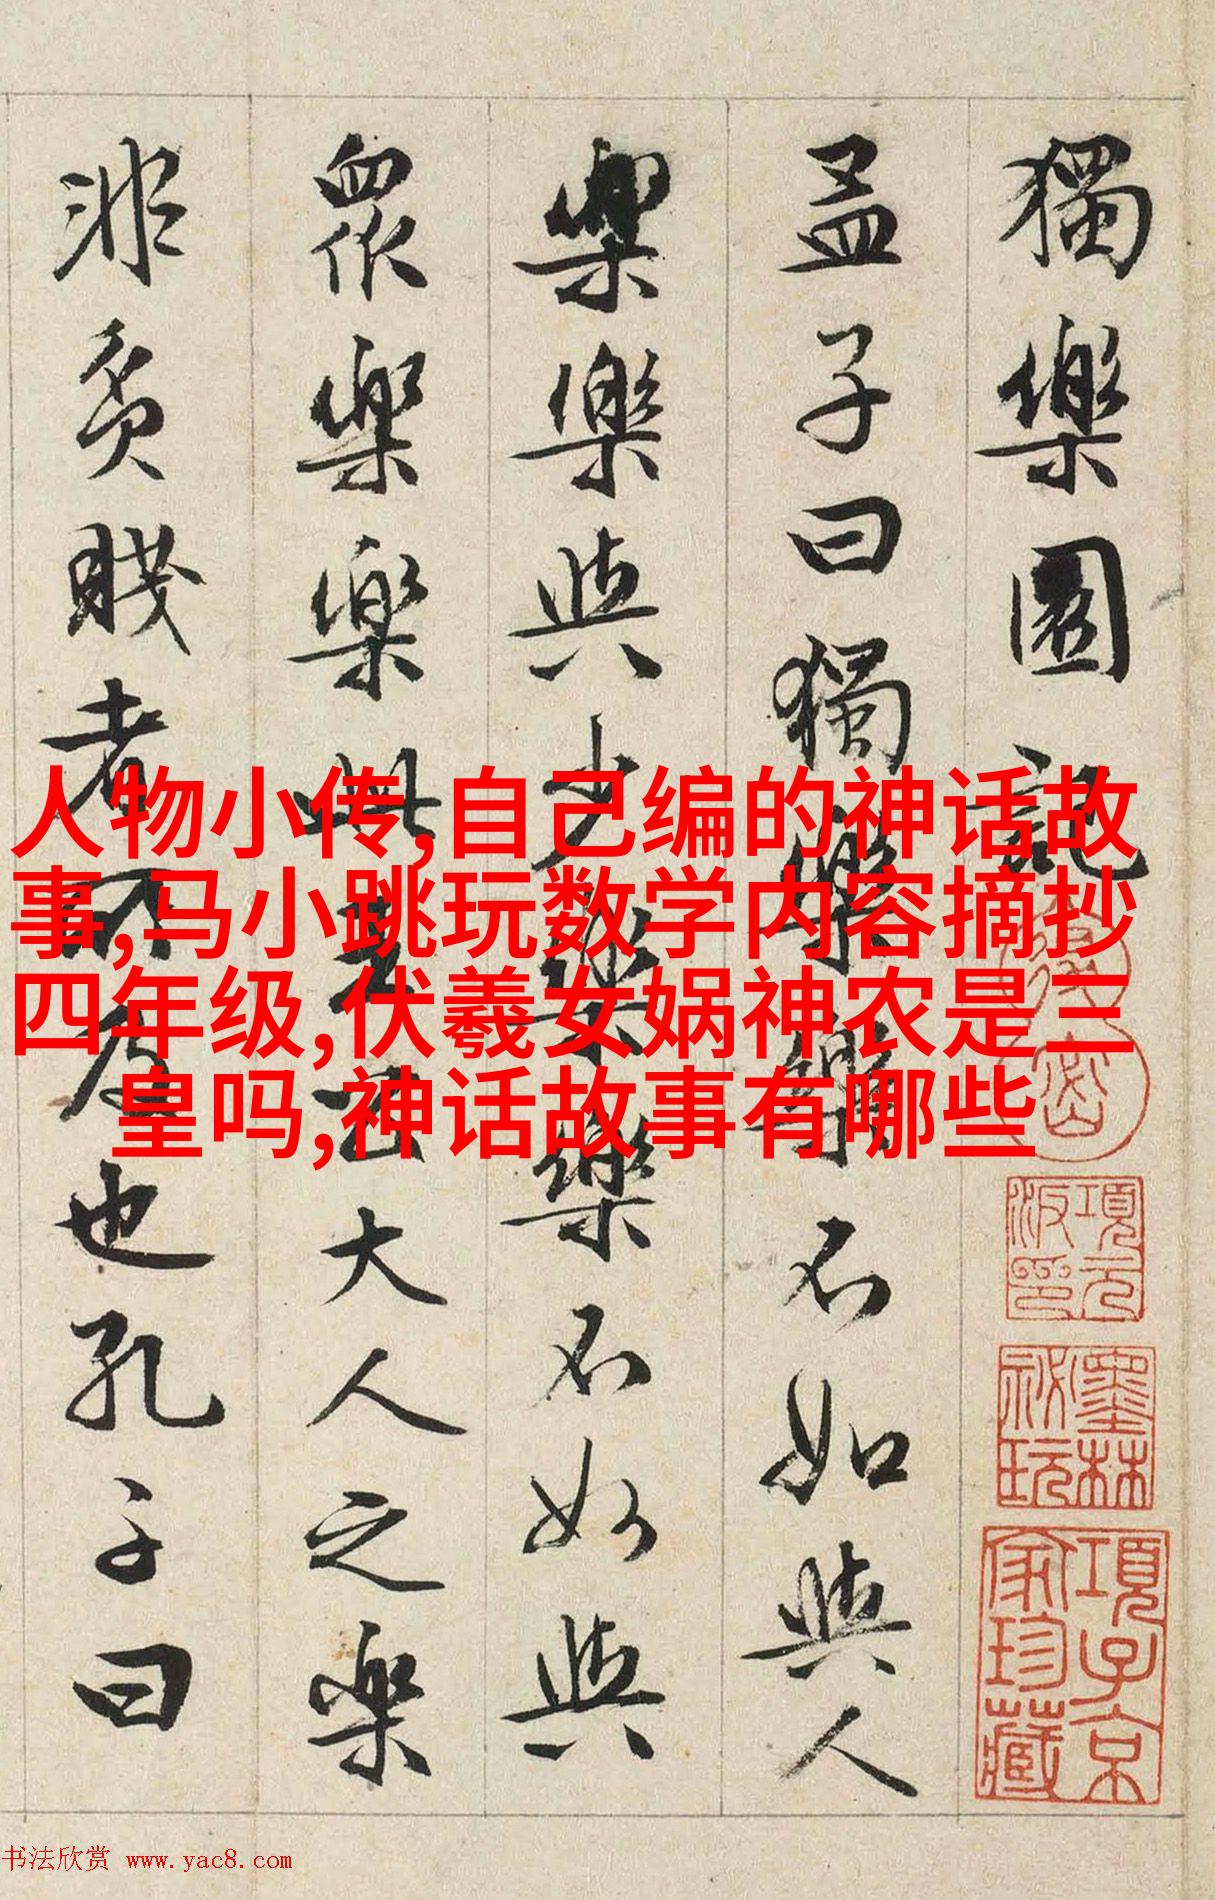 獨樂園記
孟子曰獨樂樂不如與人
樂樂與少樂樂不如與
眾樂樂此王公大人之樂
非貧賤者所及也孔子曰
人物小传,自己编的神话故
事,马小跳玩数学内容摘抄
四年级,伏羲女娲神农是三
皇吗,神话故事有哪些
項元汴印
墨林祕玩
項子京家珍藏
书法欣赏 www.yac8.com